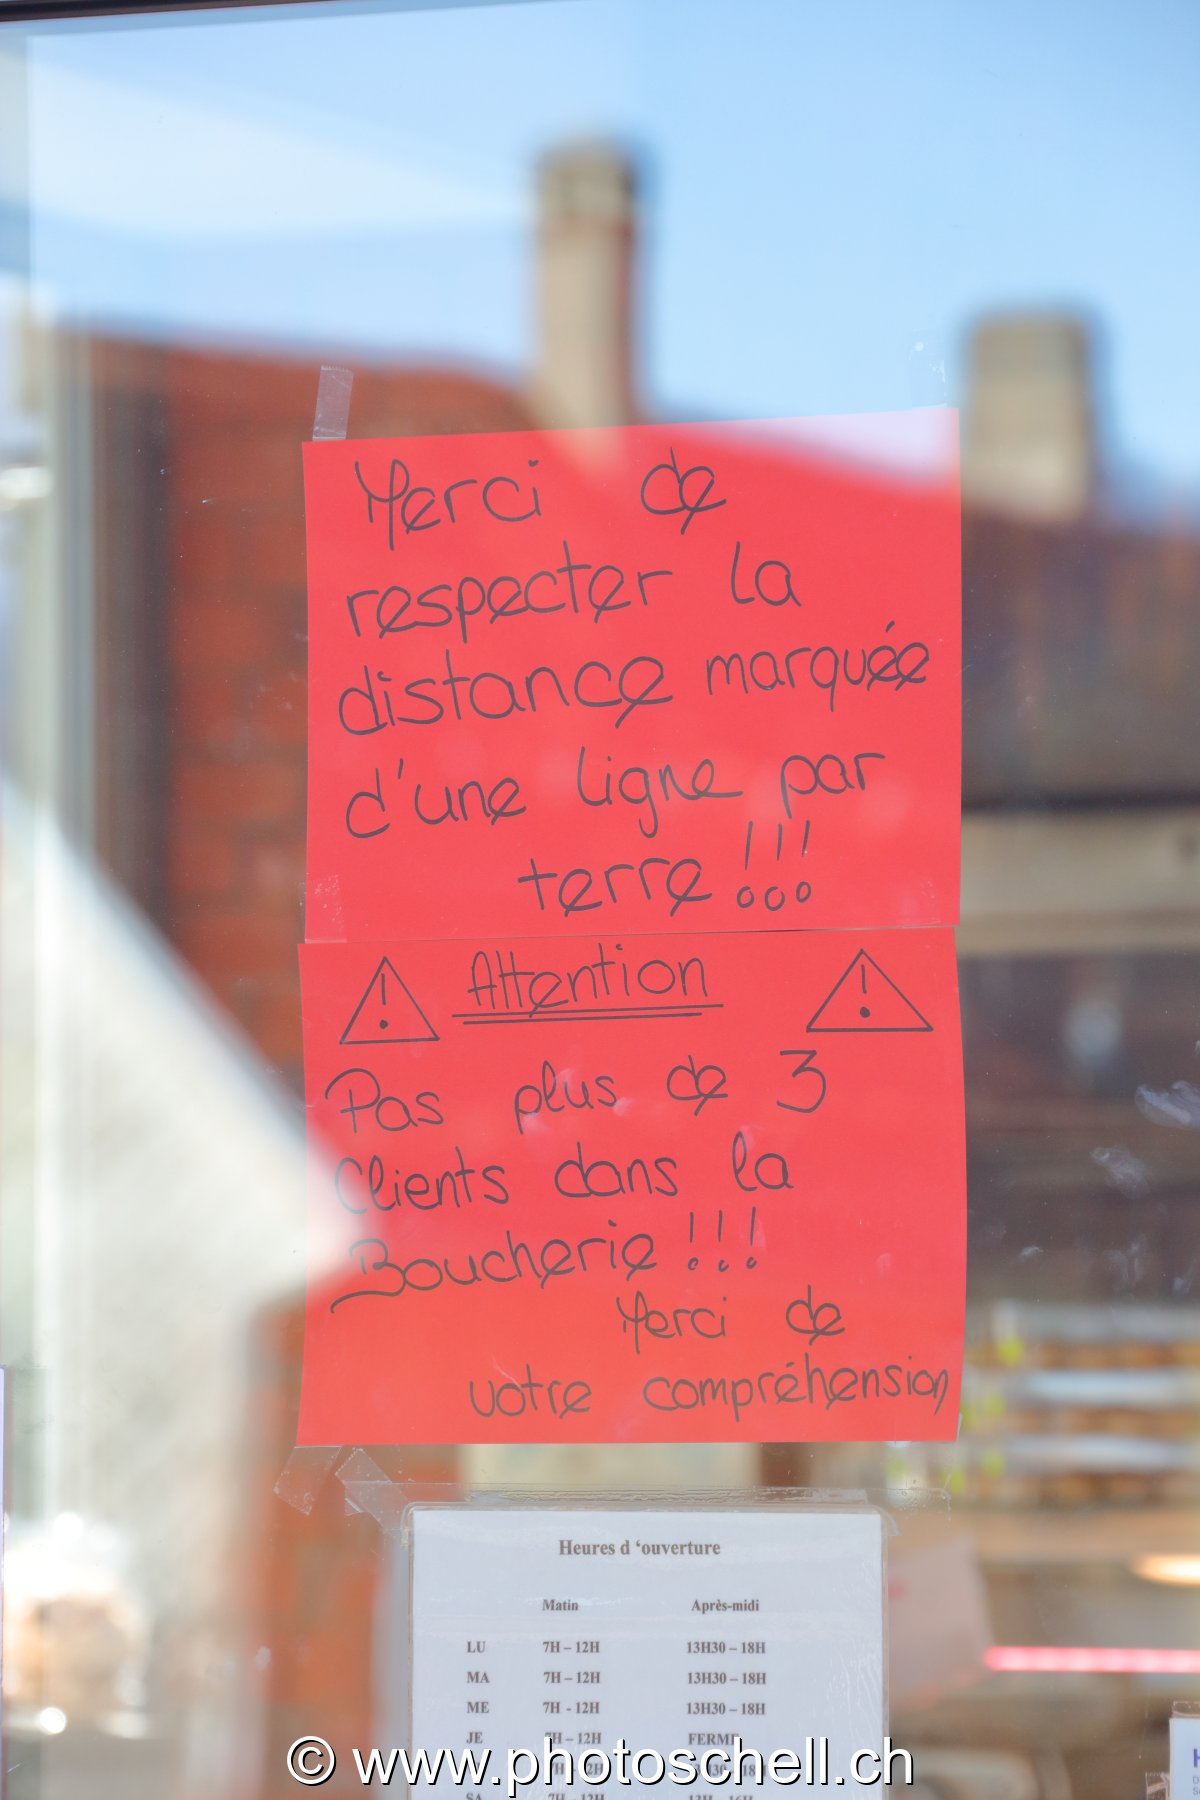 Merci de
respecter la
distance marquée
d'une ligne par
terre!!!
Attention
Pas plus de 3
Clients dans la
Boucherie!!!
Merci de
votre compréhension
Heures d 'ouverture
Matin Après-midi
LU 7H – 12H 13H30 – 18H
MA 7H – 12H 13H30 – 18H
ME 7H - 12H 13H30 – 18H
JE 7H – 12H FERME
© www.photoschell.ch
SA 7H – 12H 13H – 16H